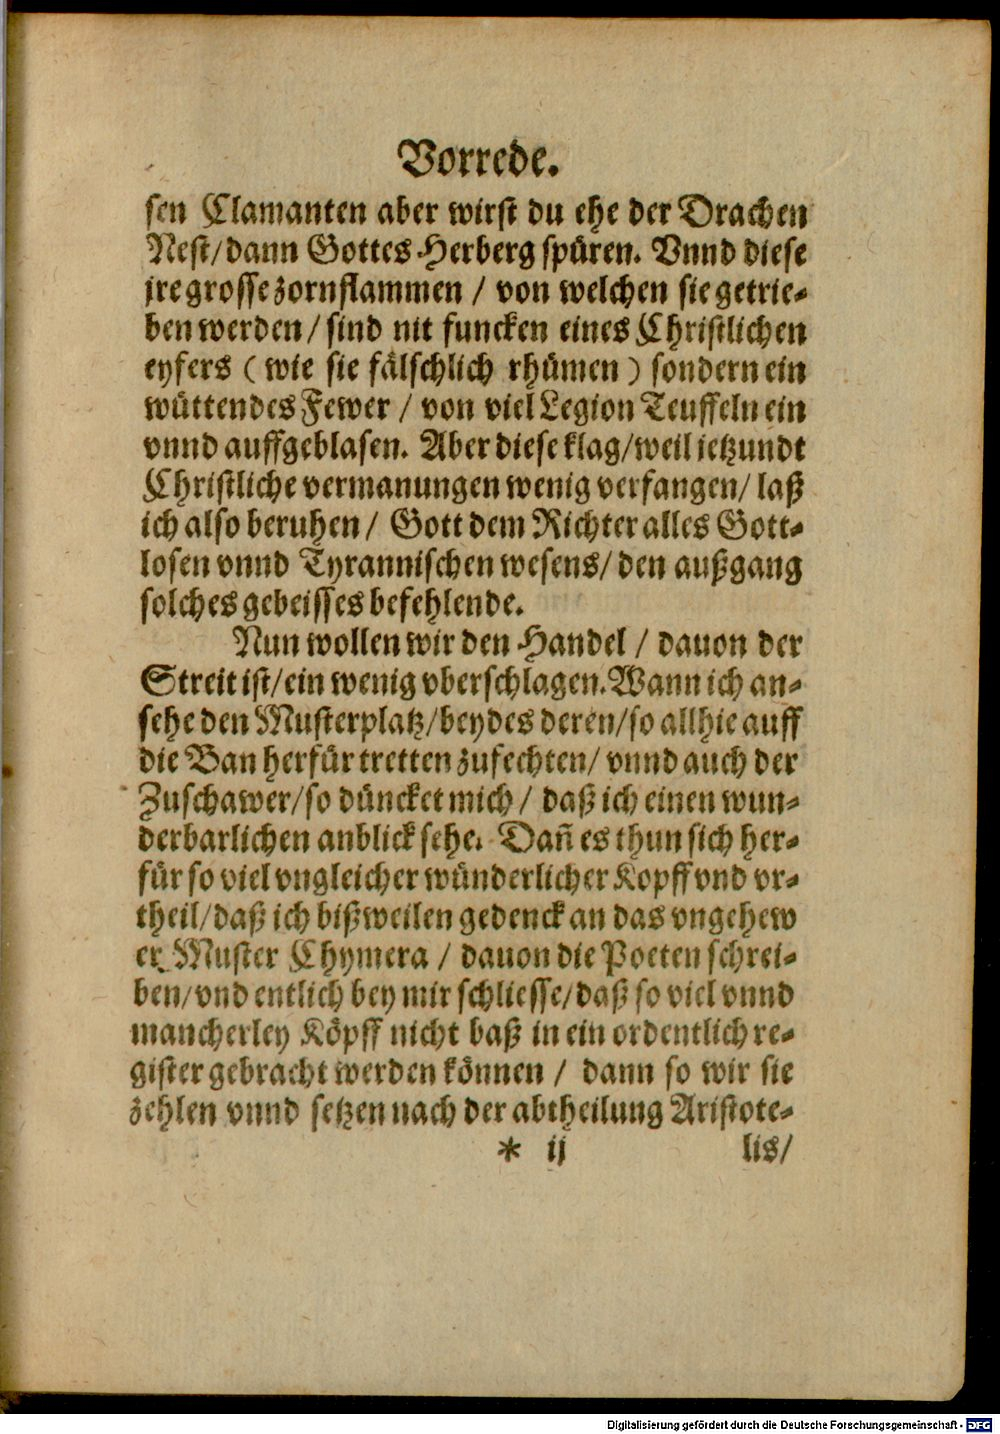 Vorrede.
sen Clamanten aber wirst du ehe der Drachen
Nest/dann Gottes Herberg spüren. Vnnd diese
jre grosse zornflammen / von welchen sie getrie-
ben werden/ sind nit funcken eines Christlichen
eyfers ( wie sie fälschlich rhümen ) sondern ein
wüttendes Fewer / von viel Legion Teuffeln ein
vnnd auffgeblasen. Aber diese klag/weil jetzundt
Christliche vermanungen wenig verfangen/ laß
ich also beruhen/ Gott dem Richter alles Gott-
losen vnnd Tyrannischen wesens/ den außgang
solches gebeisses befehlende.
Nun wollen wir den Handel / dauon der
Streit ist/ein wenig vberschlagen. Wann ich an-
sehe den Musterplatz/beydes deren/so allhie auff
die Ban herfür tretten zufechten/ vnnd auch der
Zuschawer/so düncket mich / daß ich einen wun-
derbarlichen anblick sehe. Dañ es thun sich her-
für so viel vngleicher wünderlicher Kopff vnd vr-
theil/daß ich bißweilen gedenck an das vngehew
er Muster Chymera / dauon die Poeten schrei-
ben/vnd entlich bey mir schliesse/daß so viel vnnd
mancherley Köpff nicht baß in ein ordentlich re-
gister gebracht werden können / dann so wir sie
zehlen vnnd setzen nach der abtheilung Aristote-
* ij lis/
Digitalisierung gefördert durch die Deutsche Forschungsgemeinschaft - DFG